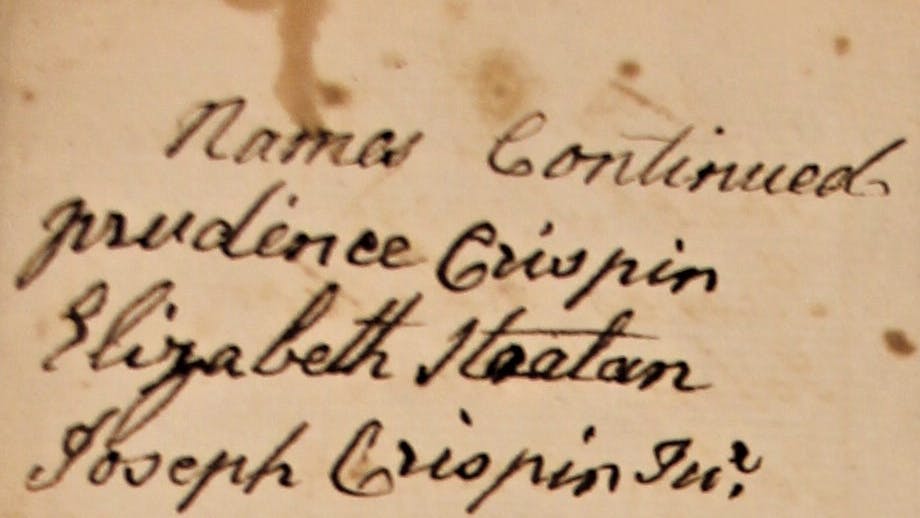 Names Continued
prudence Crispin
Elizabeth Stratan
Joseph Crispin Jur.